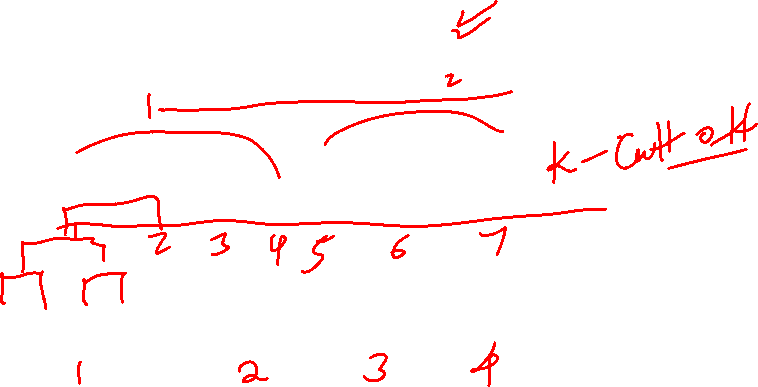 2
1
K - Cutt off
2 3 4 5 6 7
1 2 3 4